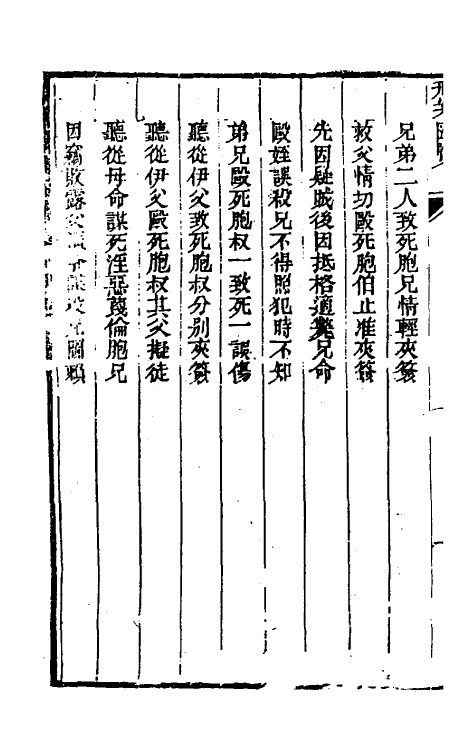 兄弟二人致死胞兄情輕夾簽
救父情切毆死胞伯止准夾簽
先因疑賊後因抵格適斃兄命
毆姪誤殺兄不得照犯時不知
弟兄毆死胞叔一致死一誤傷
聽從伊父致死胞叔分別夾簽
聽從伊父毆死胞叔其父擬徒
聽從母命謀死淫惡蔑倫胞兄
因竊敗露父
兄圖賴